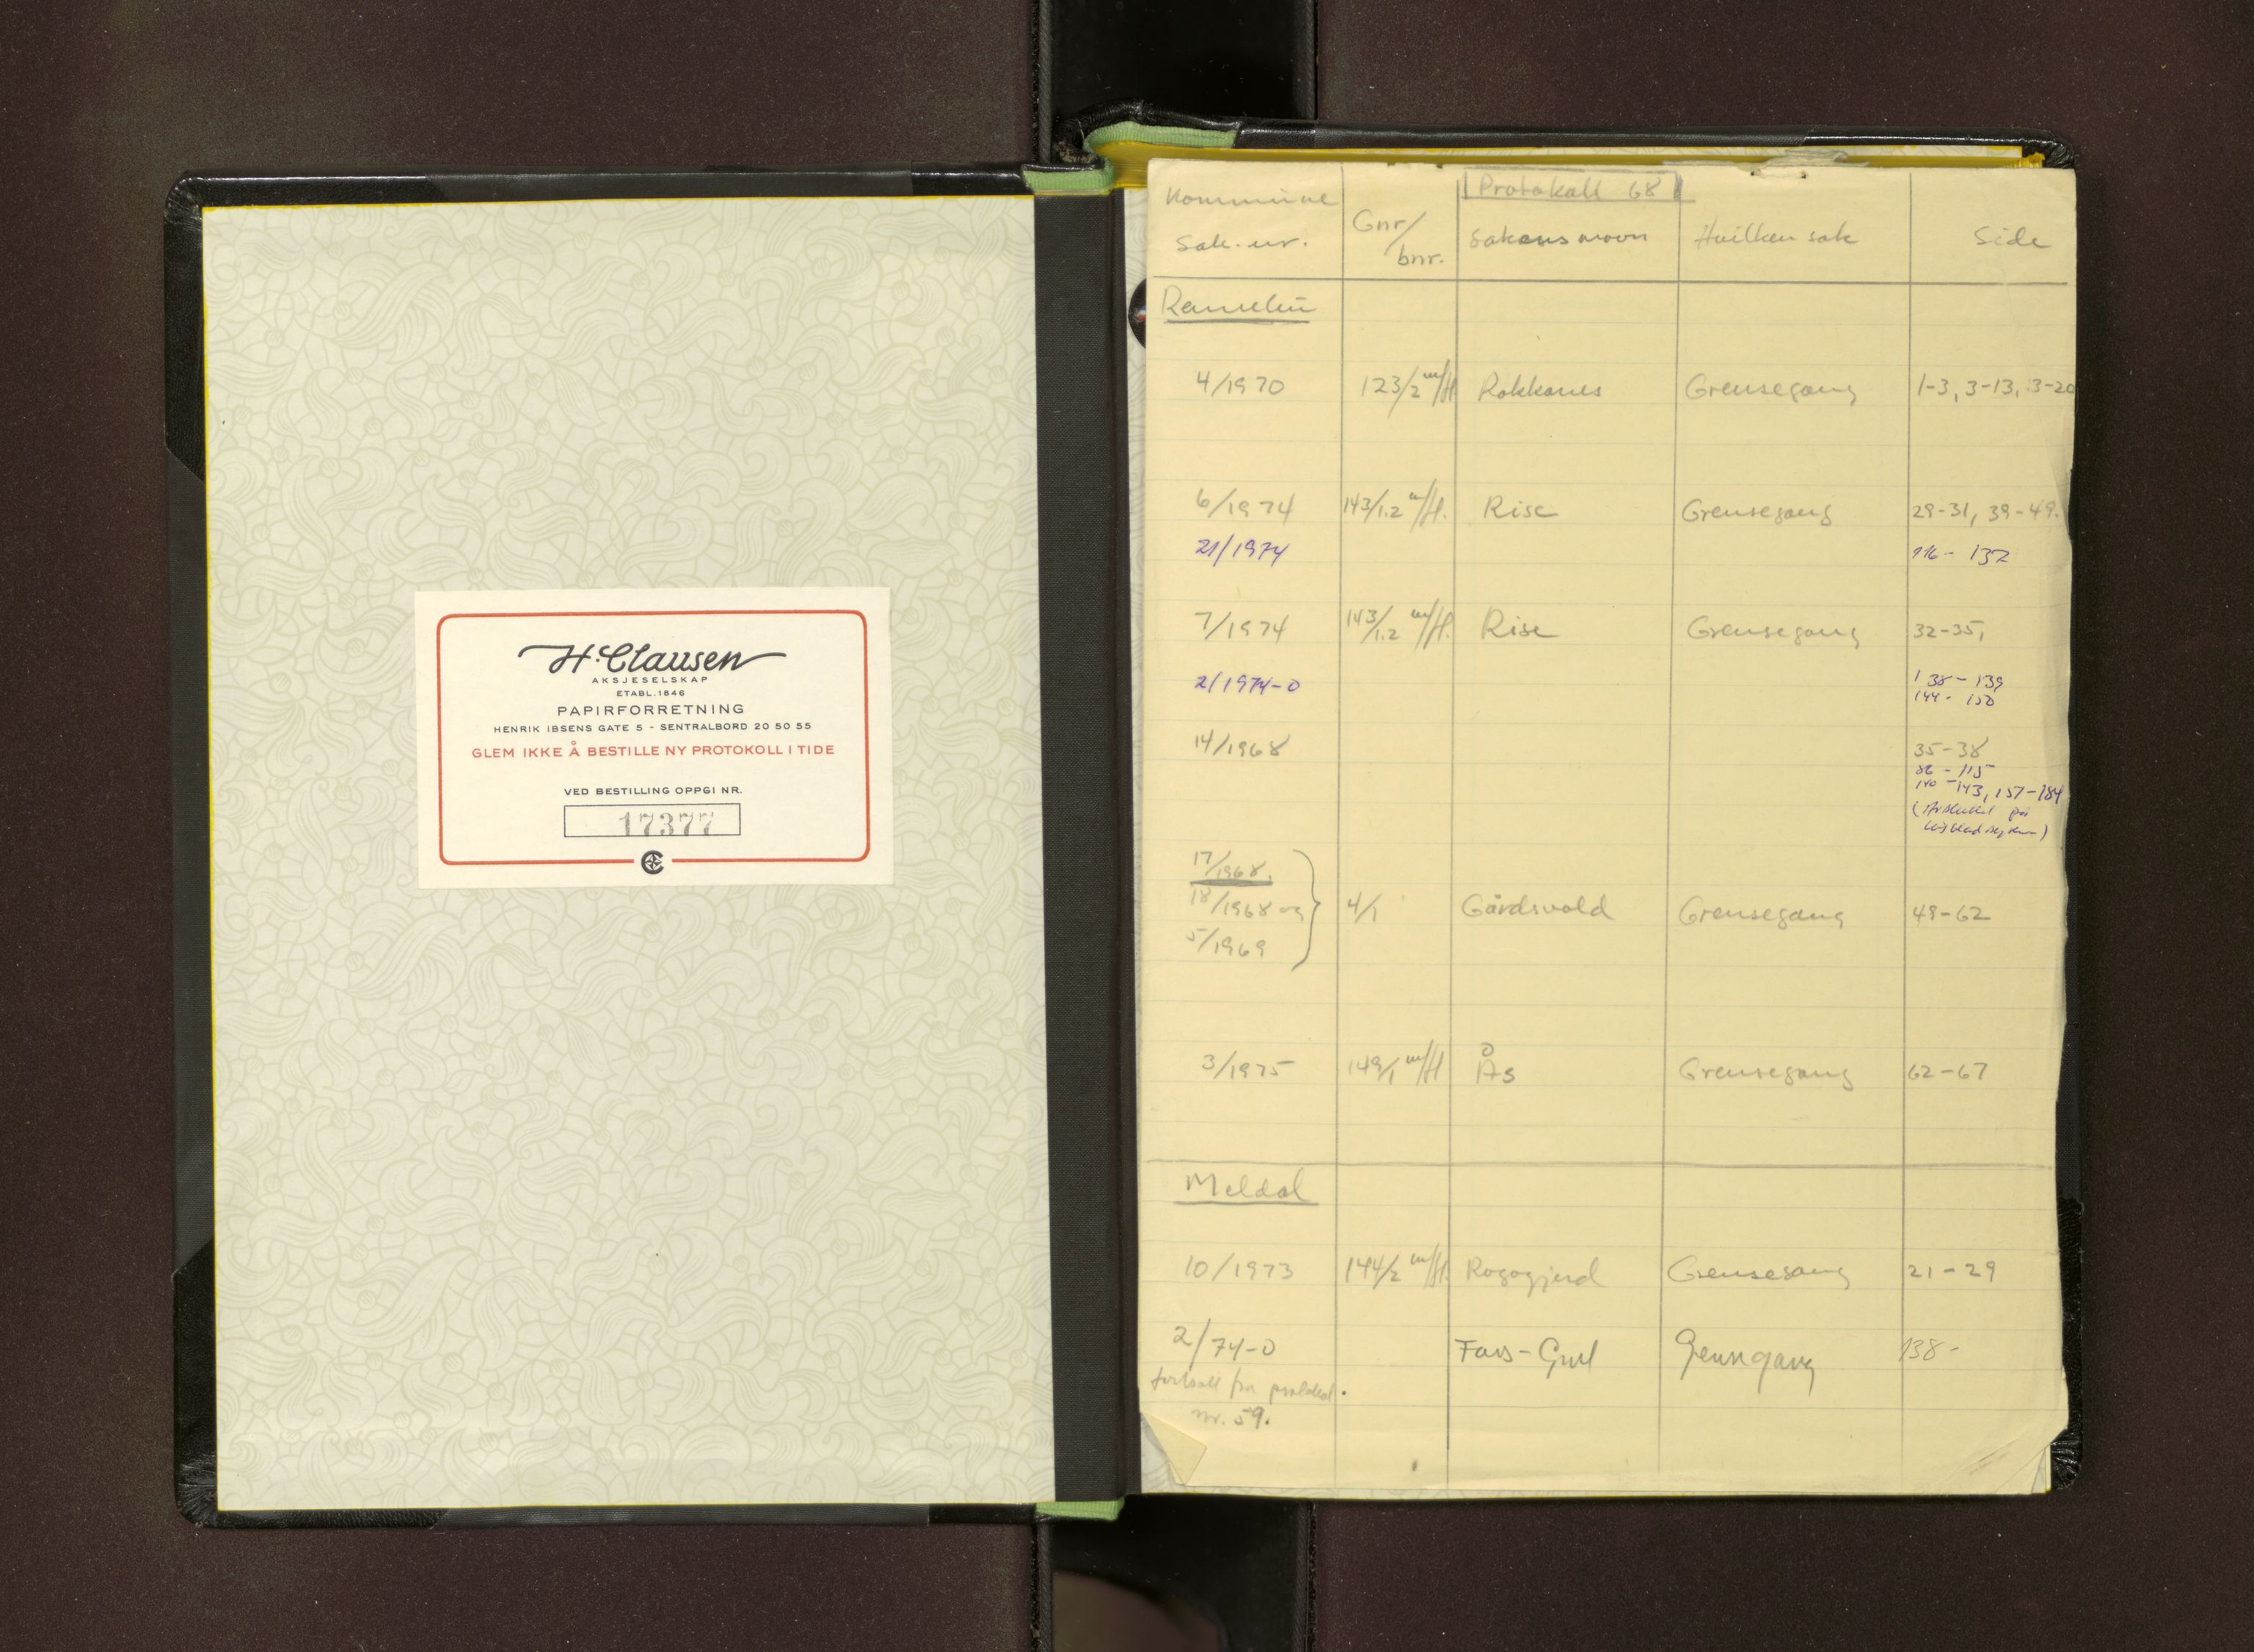 H. Clausen
AKSJESELSKAP
ETABL. 1846
PAPIRFORRETNING
HENRIK IBSENS GATE 5 - SENTRALBORD 20 50 55
GLEM IKKE Å BESTILLE NY PROTOKOLL I TIDE
VED BESTILLING OPPGI NR.
17377
Protokoll 68
Kommune Sak.nr. Gnr/bnr. Sakens navn Hvilken sak Side
Rennebu
4/1970 123/2 m/fl Rokkones Grensegang 1-3, 3-13, 3-20
6/1974 143/1.2 m/fl. Rise Grensegang 29-31, 39-49.
21/1974 116- 137
7/1974 143/1.2 m/fl. Rise Grensegang 32-35,
2/1974-0 138-139
144- 150
14/1968 35-38
86 - 115
140-143, 157-184
(Avsluttet på
løsbladsystem)
17/1968.
18/1968 og 4/1 Gårdsvold Grensegang 49-62
5/1969
3/1975 149/1 m/fl Ås Grensegang 62-67
Meldal
10/1973 144/2 m/fl. Grensegang 21-29
2/74-0 138-
nr. 59.